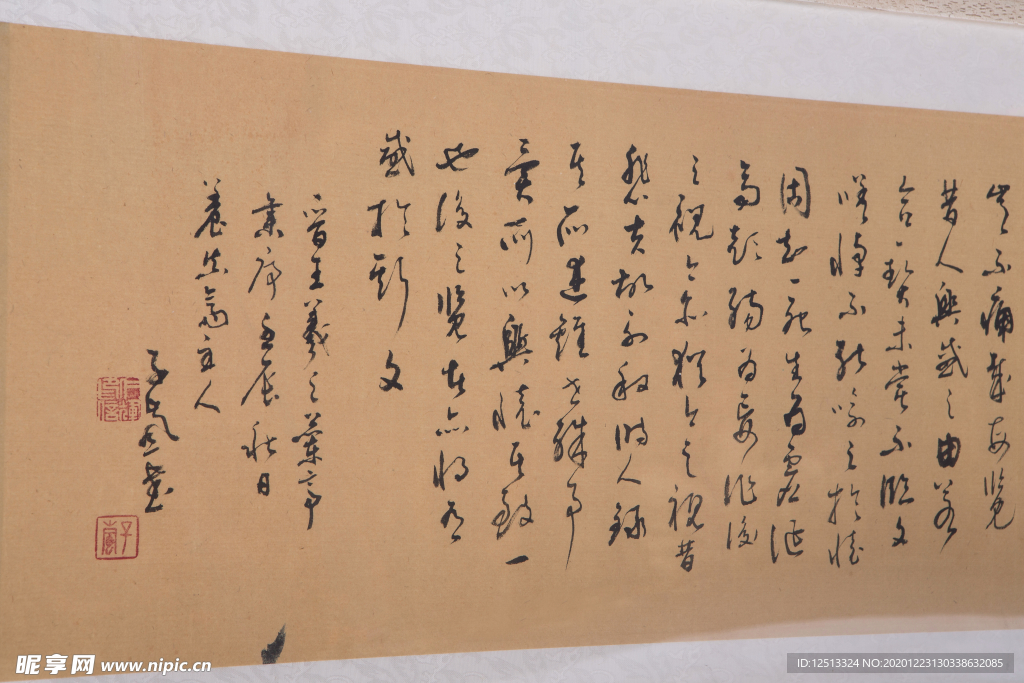 豈不痛哉每覽
昔人興感之由若
合一契未嘗不臨文
嗟悼不能喻之於懷
固知一死生為虛誕
齊彭殤為妄作後
之視今亦猶今之視昔
悲夫故列叙時人錄
其所述雖世殊事
異所以興懷其致一
也後之覽者亦將有
感於斯文
晉王羲之蘭亭
集序壬辰秋日
養真齋主人
子書
昵享网 www.nipic.cn
ID:12513324 NO:20201223130338632085